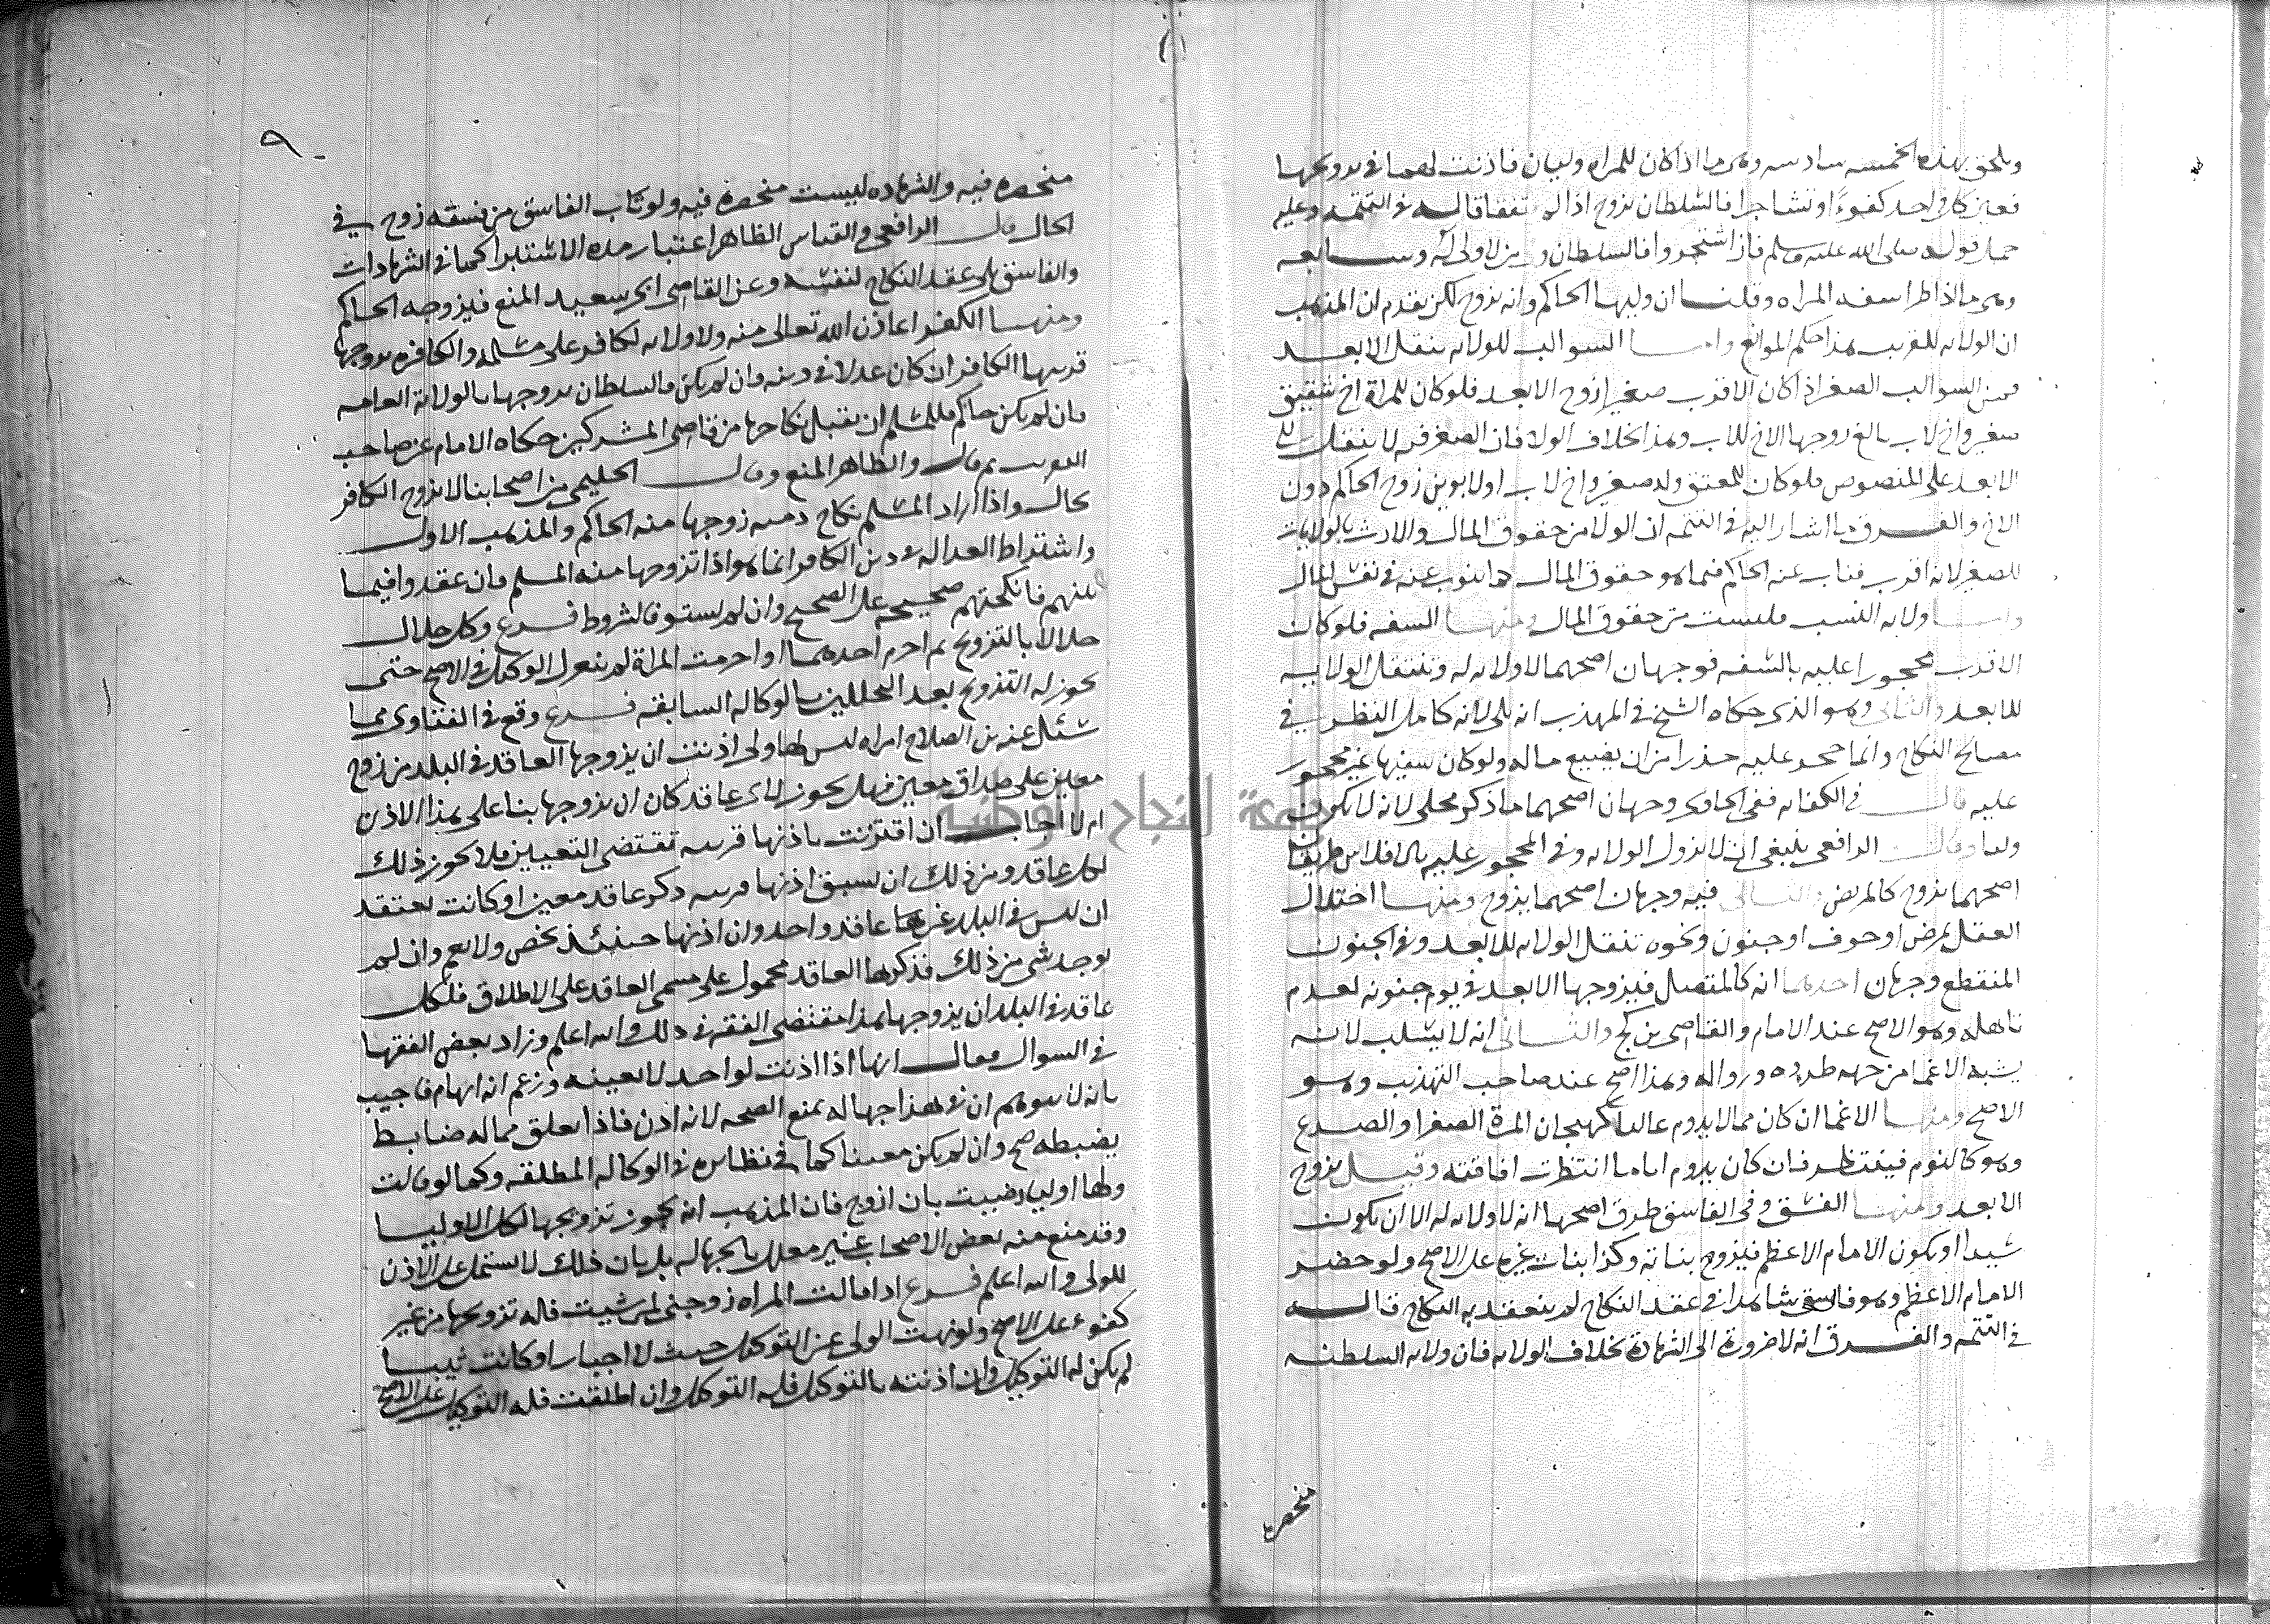 ويلحق بهذه الخمسه سادسه وهي ما اذا كان للمراه وليان فاذنت لهما في تزويجها
فعين كل واحد كفوءا وتشاجرا فالسلطان يزوج اذا لم يتفقا قاله في التتمه وعليه
حمل قوله صلى الله عليه وسلم فان اشتجروا فالسلطان ولي من لا ولي له وسابعه
وهي ما اذا طرا سفه المراه وقلنا ان وليها الحاكم وانه يزوج لكن تقدم ان المذهب
ان الولايه للقريب هذا حكم الموانع واما السوالب للولايه بنقل الابعد
فمن السوالب الصغر اذا كان الاقرب صغيرا زوج الابعد فلو كان للمراة اخ شقيق
صغير واخ لاب بالغ زوجها الاخ للاب وهذا بخلاف الولا فان الصغر فيه لا ينقل الى
الابعد على المنصوص فلو كان للمعتق ولد صغير واخ لاب او لابوين زوج الحاكم دون
الاخ والفرق ما اشار اليه في التتمه ان الولا من حقوق المال والارث بالولا ثابت
للصغير لانه اقرب فناب عنه الحاكم فيما هو حقوق المال كما ينوب عنه في نفس المال
واما ولايه النسب فليست من حقوق المال ومنها السفه فلو كان
الاقرب محجورا عليه بالسفه فوجهان اصحهما لا ولايه له وتنتقل الولايه
للابعد والثاني وهو الذي حكاه الشيخ في المهذب انه يلي لانه كامل النظر في
مصالح النكاح وانما حجر عليه حذرا من ان يضيع ماله ولو كان سفيها غير محجور
عليه قال في الكفايه ففي الحاوي وجهان اصحهما ما ذكر مجلي لانه لا يكون
وليا وقال الرافعي ينبغي ان لا تزول الولايه وفي المحجور عليه بالافلاس طريقان
اصحهما يزوج كالمريض والثاني فيه وجهان اصحهما يزوج ومنها اختلال
العقل بمرض او خوف او جنون ونحوه تنقل الولايه للابعد وفي الجنون
المنقطع وجهان احدهما انه كالمتصل فيزوجها الابعد في يوم جنونه لعدم
تاهله وهو الاصح عند الامام والقاضي بن كج والثاني انه لا يسلب لانه
يشبه الاغما من جهه طروه وزواله وهذا اصح عند صاحب التهذيب وهو
الاصح ومنها الاغما ان كان مما لا يدوم غالبا كهيجان المرة الصفرا والصرع
وهو كالنوم فينتظر فان كان يدوم اياما انتظرت افاقته وقيل يزوج
الابعد ومنها الفسق وفي الفاسق طرق اصحها انه لا ولايه له الا ان يكون
سيدا او يكون الامام الاعظم فيزوج بناته وكذا بنات غيره على الاصح ولو حضر
الامام الاعظم وهو فاسق شاهدا في عقد النكاح لم ينعقد به النكاح قاله
في التتمه والفرق انه لا ضرورة الى الشهادة بخلاف الولايه فان ولايه السلطنه
منحصره
٩
منحصره فيه والشهاده ليست منحصره فيه ولو تاب الفاسق من فسقه زوج في
الحال قال الرافعي والقياس الظاهر اعتبار مده الاستبرا كما في الشهادات
والفاسق يلي عقد النكاح لنفسه وعن القاضي ابي سعيد المنع فيزوجه الحاكم
ومنها الكفر اعاذنا الله تعالى منه ولا ولايه لكافر على مسلمه والكافره يزوجها
قريبها الكافر ان كان عدلا في دينه وان لم يكن فالسلطان يزوجها بالولاية العامه
فان لم يكن حاكم فللمسلم ان يقبل نكاحها من قاضي المشركين حكاه الامام عن صاحب
التقريب ثم قال والظاهر المنع وقال الحليمي من اصحابنا لا يزوج الكافر
بحال واذا اراد المسلم نكاح ذميه زوجها منه الحاكم والمذهب الاول
واشتراط العداله في دين الكافر انما هو اذا تزوجها منه المسلم فان عقدوا فيما
بينهم فانكحتهم صحيحه على الصحيح وان لم يستوف الشروط فرع وكل حلال
حلالا بالتزويج ثم احرم احدهما او احرمت المراة لم ينعزل الوكيل في الاصح حتى
يجوز له التزويج بعد التحللين بالوكاله السابقه فرع وقع في الفتاوى مما
سئل عنه بن الصلاح امراه ليس لها ولي اذنت ان يزوجها العاقد في البلد من زوج
معين على صداق معين فهل يجوز لاي عاقد كان ان يزوجها بنا على هذا الاذن
ام لا اجاب ان اقترنت باذنها قرينه تقتضي التعيين فلا يجوز ذلك
لكل عاقد ومن ذلك ان يسبق اذنها قرينه ذكر عاقد معين او كانت تعتقد
ان ليس في البلد غيرها عاقد واحد وان اذنها حينئذ يخص ولا يعم وان لم
يوجد شي من ذلك فذكرها العاقد محمول على مسمى العاقد على الاطلاق فلكل
عاقد في البلد ان يزوجها هذا مقتضى الفقه في ذلك والله اعلم وزاد بعض الفقها
في السوال فقال انها اذا اذنت لواحد لا بعينه وزعم انه ابهام فاجيب
بانه لا يتوهم ان في هذا جهاله تمنع الصحه لانه اذن فاذا تعلق بما له ضابط
يضبطه صح وان لم يكن معينا كما في نظايره في الوكاله المطلقه وكما لو قالت
ولها اوليا رضيت بان ازوج فان المذهب انه يجوز تزويجها لكل الاوليا
وقد منع منه بعض الاصحاب غير معلل بالجهاله بل بان ذلك لا يشتمل على الاذن
للولي والله اعلم فرع اذا قالت المراه زوجني لمن شيت فله تزويجها من غير
كفوء على الاصح ولو نهت الولي عن التوكيل حيث لا اجبار او كانت ثيبا
لم يكن له التوكيل وان اذنته بالتوكيل فله التوكيل وان اطلقت فله التوكيل على الاصح
جامعة النجاح الوطنية